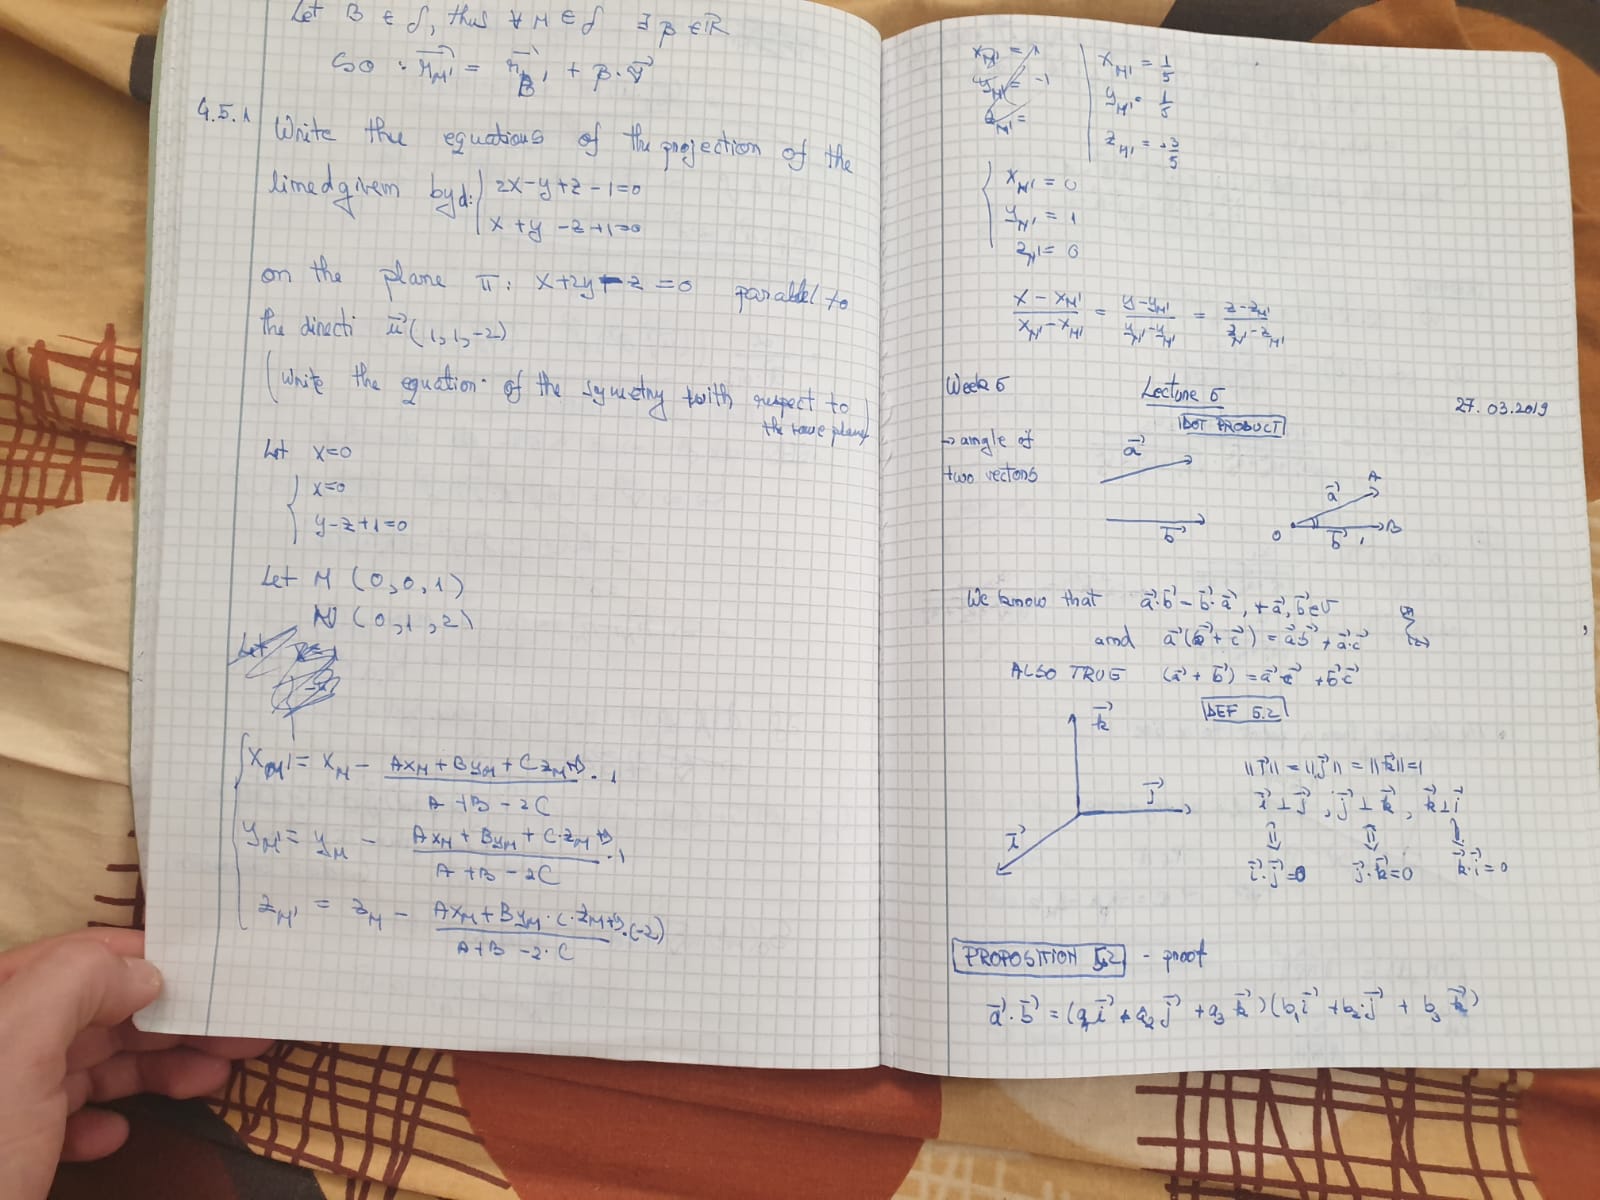 Let B ∈ δ, thus ∀ M ∈ δ ∃ β ∈ ℝ
SO : r⃗_M' = r⃗_B' + β·v⃗
4.5.1 Write the equations of the projection of the
line d given by d: { 2x-y+z-1=0
x+y-z+1=0
on the plane π: x+2y-z=0 parallel to
the directi u⃗(1,1,-2)
(write the equation of the symetry with respect to
the same plane)
Let x=0
{ x=0
y-z+1=0
Let M (0,0,1)
N (0,1,2)
Let
{ x_M' = x_M - (Ax_M + By_M + Cz_M + D)/(A+B-2C) · 1
y_M' = y_M - (Ax_M + By_M + C·z_M + D)/(A+B-2C) · 1
z_M' = z_M - (Ax_M + By_M · C·z_M + D)/(A+B-2·C) · (-2)
x_M' = 1/5
y_M' = 1/5
z_M' = 3/5
{ x_N' = 0
y_N' = 1
z_N' = 0
(x - x_M')/(x_N' - x_M') = (y - y_M')/(y_N' - y_M') = (z - z_M')/(z_N' - z_M')
Week 5 Lecture 5 27.03.2019
DOT PRODUCT
→ angle of
two vectors
a⃗
b⃗
O a⃗ A b⃗ B
We know that a⃗·b⃗ - b⃗·a⃗, ∀ a⃗, b⃗ ∈ V
and a⃗(b⃗ + c⃗) = a⃗b⃗ + a⃗·c⃗
ALSO TRUE (a⃗ + b⃗) = a⃗ c⃗ + b⃗c⃗
DEF 5.2
k⃗
j⃗
i⃗
||i⃗|| = ||j⃗|| = ||k⃗|| = 1
i⃗ ⊥ j⃗, j⃗ ⊥ k⃗, k⃗ ⊥ i⃗
i⃗·j⃗=0 j⃗·k⃗=0 k⃗·i⃗=0
PROPOSITION 5.2 - proof
a⃗·b⃗ = (a₁i⃗ + a₂j⃗ + a₃k⃗)(b₁i⃗ + b₂·j⃗ + b₃k⃗)